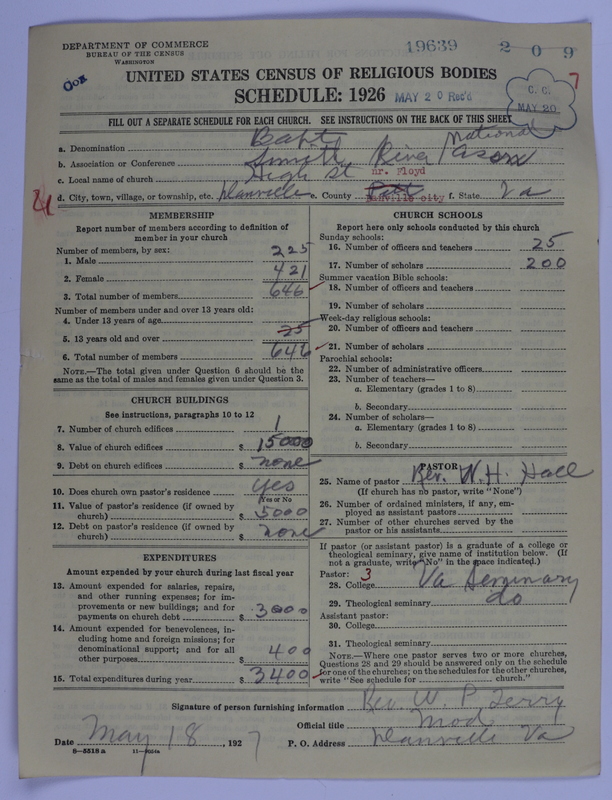 DEPARTMENT OF COMMERCE
BUREAU OF THE CENSUS
WASHINGTON
19639
209
UNITED STATES CENSUS OF RELIGIOUS BODIES
SCHEDULE: 1926
MAY 20 Rec'd
C. C.
MAY 20
7
FILL OUT A SEPARATE SCHEDULE FOR EACH CHURCH. SEE INSTRUCTIONS ON THE BACK OF THIS SHEET
a. Denomination Bapt National
b. Association or Conference Smith River Assn
c. Local name of church High St nr. Floyd
d. City, town, village, or township, etc. Danville e. County Danville city f. State Va
MEMBERSHIP
Report number of members according to definition of
member in your church
Number of members, by sex:
1. Male 225
2. Female 421
3. Total number of members 646
Number of members under and over 13 years old:
4. Under 13 years of age
5. 13 years old and over 25
6. Total number of members 646
NOTE.—The total given under Question 6 should be the
same as the total of males and females given under Question 3.
CHURCH BUILDINGS
See instructions, paragraphs 10 to 12
7. Number of church edifices 1
8. Value of church edifices $ 15000
9. Debt on church edifices $ none
10. Does church own pastor's residence yes
Yes or No
11. Value of pastor's residence (if owned by
church) $ 5000
12. Debt on pastor's residence (if owned by
church) $ none
EXPENDITURES
Amount expended by your church during last fiscal year
13. Amount expended for salaries, repairs,
and other running expenses; for im-
provements or new buildings; and for
payments on church debt $ 3000
14. Amount expended for benevolences, in-
cluding home and foreign missions; for
denominational support; and for all
other purposes $ 400
15. Total expenditures during year $ 3400
CHURCH SCHOOLS
Report here only schools conducted by this church
Sunday schools:
16. Number of officers and teachers 25
17. Number of scholars 200
Summer vacation Bible schools:
18. Number of officers and teachers
19. Number of scholars
Week-day religious schools:
20. Number of officers and teachers
21. Number of scholars
Parochial schools:
22. Number of administrative officers
23. Number of teachers—
a. Elementary (grades 1 to 8)
b. Secondary
24. Number of scholars—
a. Elementary (grades 1 to 8)
b. Secondary
PASTOR
25. Name of pastor Rev. W. H. Hall
(If church has no pastor, write "None")
26. Number of ordained ministers, if any, em-
ployed as assistant pastors
27. Number of other churches served by the
pastor or his assistants
If pastor (or assistant pastor) is a graduate of a college or
theological seminary, give name of institution below. (If
not a graduate, write "No" in the space indicated.)
Pastor: 3
28. College Va Seminary
29. Theological seminary do
Assistant pastor:
30. College
31. Theological seminary
NOTE.—Where one pastor serves two or more churches,
Questions 28 and 29 should be answered only on the schedule
for one of the churches; on the schedules for the other churches,
write "See schedule for church."
Signature of person furnishing information Rev. W. P. Terry
Official title Mod
Date May 18, 1927 P. O. Address Danville Va
8—5518a 11—9034a